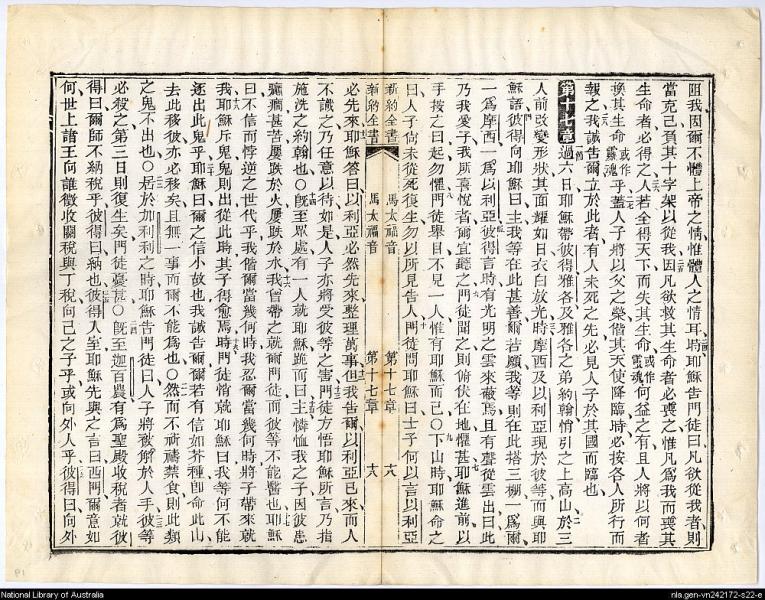 阻我因爾不體上帝之情惟體人之情耳時耶穌告門徒曰凡欲從我者則
當克己負其十字架以從我因凡欲救其生命者必喪之惟凡爲我而喪其
生命者必得之人若全得天下而失其生命或作靈魂何益之有且人將以何者
換其生命或作靈魂乎蓋人子將以父之榮偕其天使降臨時必按各人所行而
報之我誠告爾立於此者有人未死之先必見人子於其國而臨也
第十七章過六日耶穌帶彼得雅各及雅各之弟約翰悄引之上高山於三
人前改變形狀其面耀如日衣白放光時摩西及以利亞現於彼等而與耶
穌語彼得向耶穌曰主我等在此甚善爾若願我等則在此搭三棚一爲爾
一爲摩西一爲以利亞彼得言時有光明之雲來蔽焉且有聲從雲出曰此
乃我愛子我所喜悅者爾宜聽之門徒聞之則俯伏在地懼甚耶穌進前以
手按之曰起勿懼門徒舉目不見一人惟有耶穌而已○下山時耶穌命之
曰人子尚未從死復生勿以所見告人門徒問耶穌曰士子何以言以利亞
新約全書 馬太福音 第十七章 十八
新約全書 馬太福音 第十七章 十八
必先來耶穌答曰以利亞必然先來整理萬事但我告爾以利亞已來而人
不識之乃任意以待如是人子亦將受彼等之害門徒方悟耶穌所言乃指
施洗之約翰也○旣至眾處有一人就耶穌跪而曰主憐恤我之子因彼患
癲癎甚苦屢跌於火屢跌於水我曾帶之就爾門徒而彼等不能醫也耶穌
曰不信而悖逆之世代乎我偕爾當幾何時我忍爾當幾何時將子帶來就
我耶穌斥鬼鬼則出從此時其子得愈焉時門徒悄就耶穌曰我等何不能
逐出此鬼乎耶穌曰爾之信小故也我誠告爾爾若有信如芥種卽命此山
去此移彼亦必移矣且無一事而爾不能爲也○然而不祈禱禁食則此類
之鬼不出也○居於加利利之時耶穌告門徒曰人子將被解於人手彼等
必殺之第三日則復生矣門徒憂甚○旣至迦百農有爲聖殿收稅者就彼
得曰爾師不納稅乎彼得曰納也彼得入至耶穌先與之言曰西門爾意如
何世上諸王向誰徵收關稅與丁稅向己之子乎或向外人乎彼得曰向外
National Library of Australia
nla.gen-vn242172-s22-e